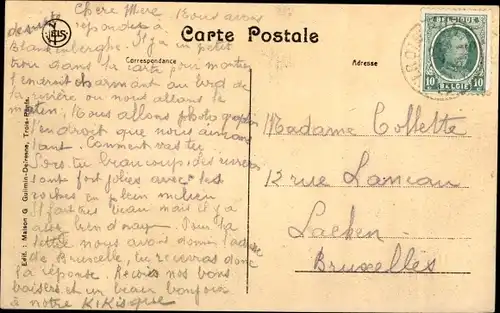 Chère Mère. Nous avons
de suite répondu à
Blankenberghe. Il y a un petit
trou dans la carte pour montrer
l'endroit charmant au bord de
la rivière ou nous allons le
matin. Nous allons photographier
l'endroit que nous aimons
tant. Comment vas tu
beaucoup des
sont fort jolies avec les
roches en plein milieu
Il fait très beau mais il y a
Pour la
lettre nous avons donné l'adresse
de Bruxelle, tu recevras donc
la réponse. Reçois nos bons
baisers et un beau bonjour
à notre KiKisque
NELS
Carte Postale
Correspondance
Adresse
BELGIQUE
10 BELGIË 10
Madame Collette
12 rue Laneau
Laeken
Bruxelles
Edit.: Maison G. Guilmin-Defrenne, Trois-Ponts.